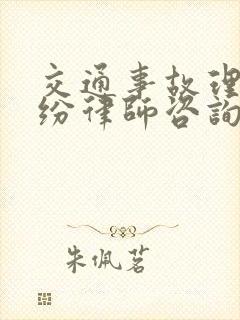 交通事故理
纷律师咨询
朱佩茗